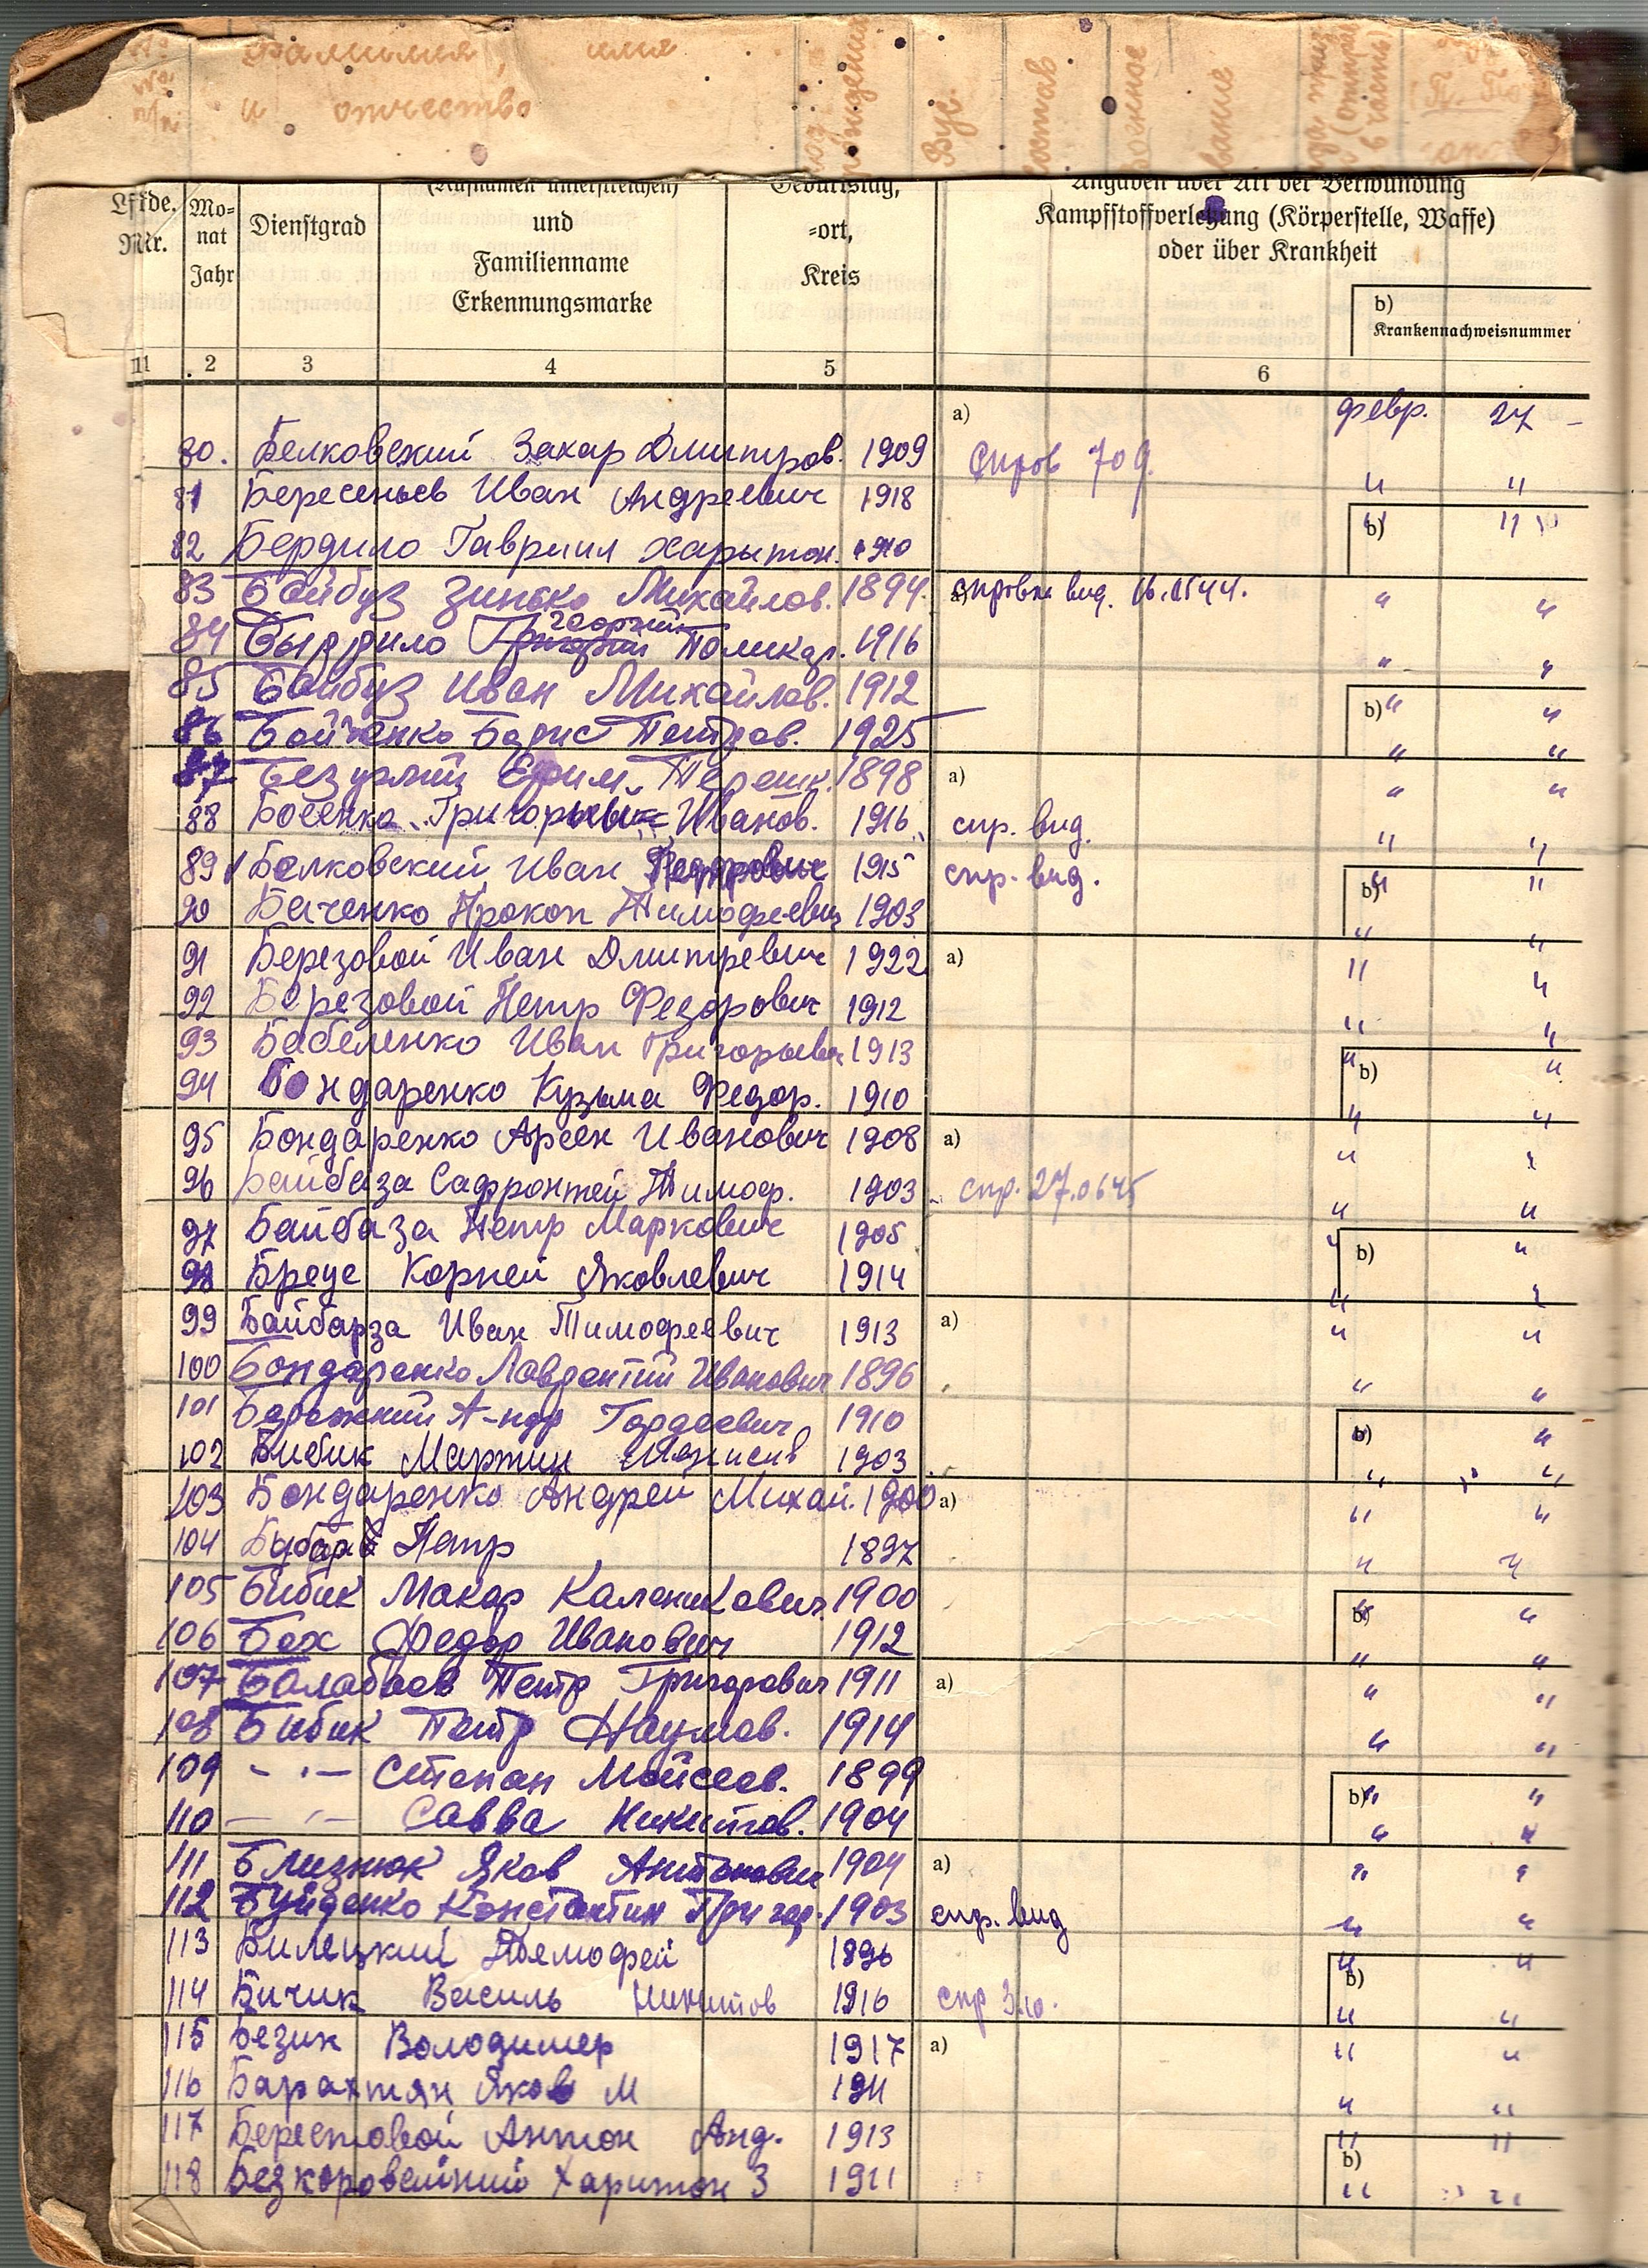 фамилия, имя
и отчество
Lfde. Nr.
Mo-nat Jahr
Dienstgrad
(Rufnamen unterstreichen)
und
Familienname
Erkennungsmarke
Geburtstag,
-ort,
Kreis
Angaben über Art der Verwundung
Kampfstoffverletzung (Körperstelle, Waffe)
oder über Krankheit
b)
Krankennachweisnummer
1 2 3 4 5 6
a) февр. 27
80. Белковский Захар Дмитров. 1909
81 Бересньев Иван Андреевич 1918 " "
82 Бердило Гавриил Харитон. 1910 b) " "
83 Байбуз Зинько Михайлов. 1894 a) " "
84 Бырдило Георгий Поликар. 1916 " "
85 Байбуз Иван Михайлов. 1912 b) " "
86 Бойченко Борис Петров. 1925 " "
87 Безуглий Ефим Терешк. 1898 a) " "
88 Босенко Григорий Иванов. 1916 спр. вид. " "
89 Белковский Иван Федорович 1915 спр. вид. b) " "
90 Баченко Прокоп Тимофеевич 1903 " "
91 Березовой Иван Дмитревич 1922 a) " "
92 Березовой Петр Федорович 1912 " "
93 Бабеленко Иван Григорьевич 1913 " "
94 Бондаренко Кузьма Федор. 1910 b) " "
95 Бондаренко Арсен Иванович 1908 a) " "
96 Байбаза Софронтей Тимоф. 1903 спр. 27.06.45 " "
97 Байбаза Петр Маркович 1905 b) " "
98 Бреус Корней Яковлевич 1914 " "
99 Байбарза Иван Тимофеевич 1913 a) " "
100 Бондаренко Лаврентий Иванович 1896 " "
101 А-ндр Гордеевич 1910 b) " "
102 Бибик Мартин 1903 " "
103 Бондаренко Андрей Михай. 1900 a) " "
104 Петр 1897 " "
105 Бибик Макар Каленикович 1900 b) " "
106 Бех Федор Иванович 1912 " "
107 Балабаев Петр Григорович 1911 a) " "
108 Бибик Петр Наумов. 1914 " "
109 - " - Степан Мойсеев. 1899 b) " "
110 - " - Савва Никитов. 1904 " "
111 Близнюк Яков Антонович 1904 a) " "
112 Буйденко Константин Григор. 1903 спр. вид " "
113 Билецкий Тимофей 1896 b) " "
114 Бичик Василь Никитов 1916 спр " "
115 Безик Володимер 1917 a) " "
116 Барахтян Яков М 1911 " "
117 Берестовой Антон Анд. 1913 b) " "
118 Безкоровейний Харитон З 1911 " "